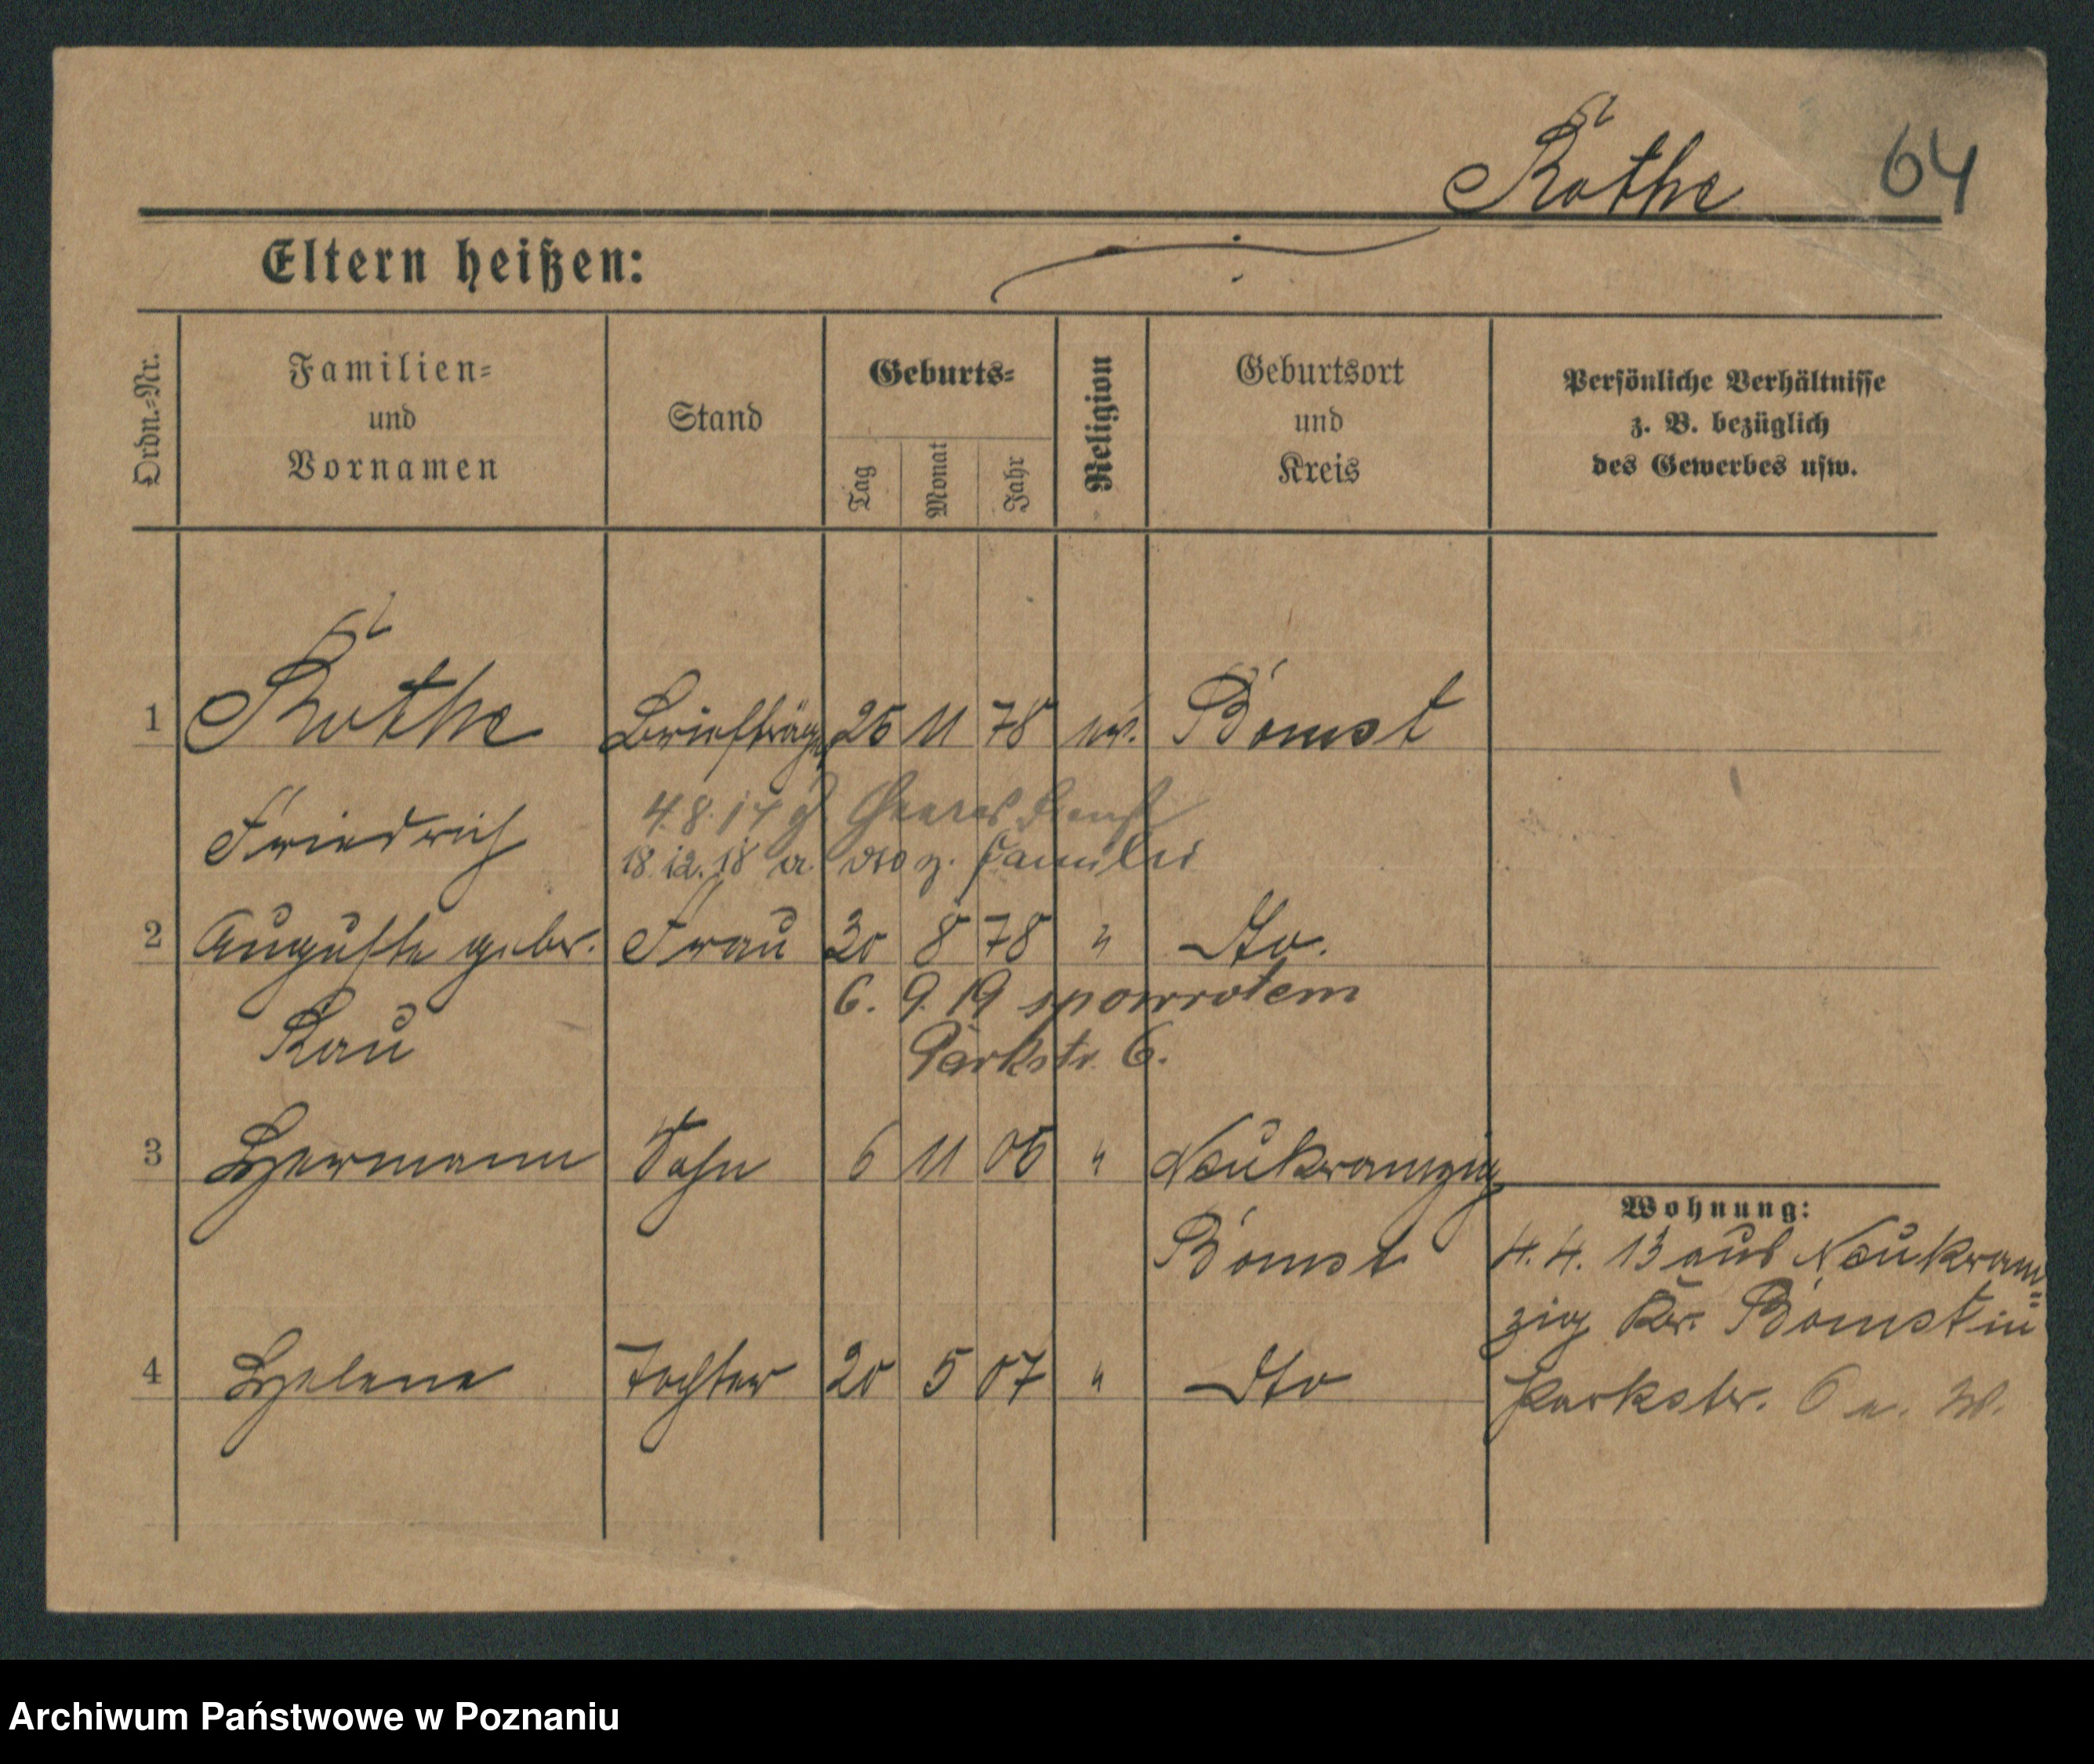 Rothe 64
Eltern heißen:
Ordn.=Nr.
Familien=
und
Vornamen
Stand
Geburts=
Tag
Monat
Jahr
Religion
Geburtsort
und
Kreis
Persönliche Verhältnisse
z. B. bezüglich
des Gewerbes usw.
1 Rothe Briefträger 25 11 78 ev. Bomst
Friedrich 4.8.14 Heeresdienst
18.12.18 z. Familie
2 Auguste gebr. Frau 20 8 78 " dto.
6. 9. 19 spowrotem
Rau Parkstr. 6.
3 Hermann Sohn 6 11 05 " Neukramzig
Wohnung:
Bomst 4. 4. 13 aus Neukram=
zig Kr. Bomst in
4 Helene Tochter 20 5 07 " dto
Parkstr. 6
Archiwum Państwowe w Poznaniu